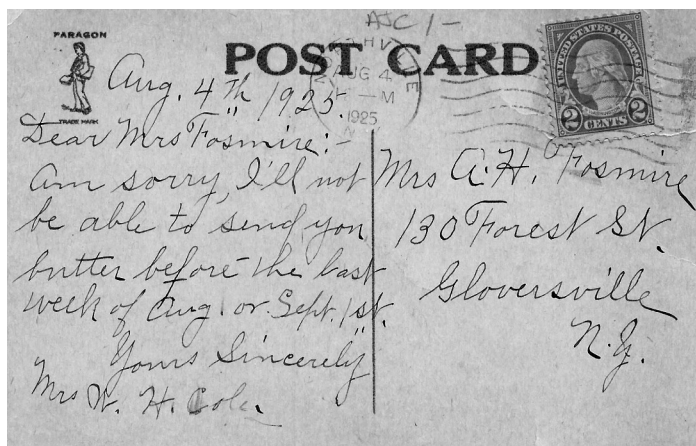 AJC 1-
PARAGON
TRADE MARK
POST CARD
AUG 4
M
1925
UNITED STATES POSTAGE
2 CENTS 2
Aug. 4th 1925.
Dear Mrs Fosmire:-
Am sorry, I'll not
be able to send you
butter before the last
week of Aug. or Sept. 1st.
Yours Sincerely
Mrs W. H. Cole.
Mrs A. H. Fosmire
130 Forest St.
Gloversville
N.Y.